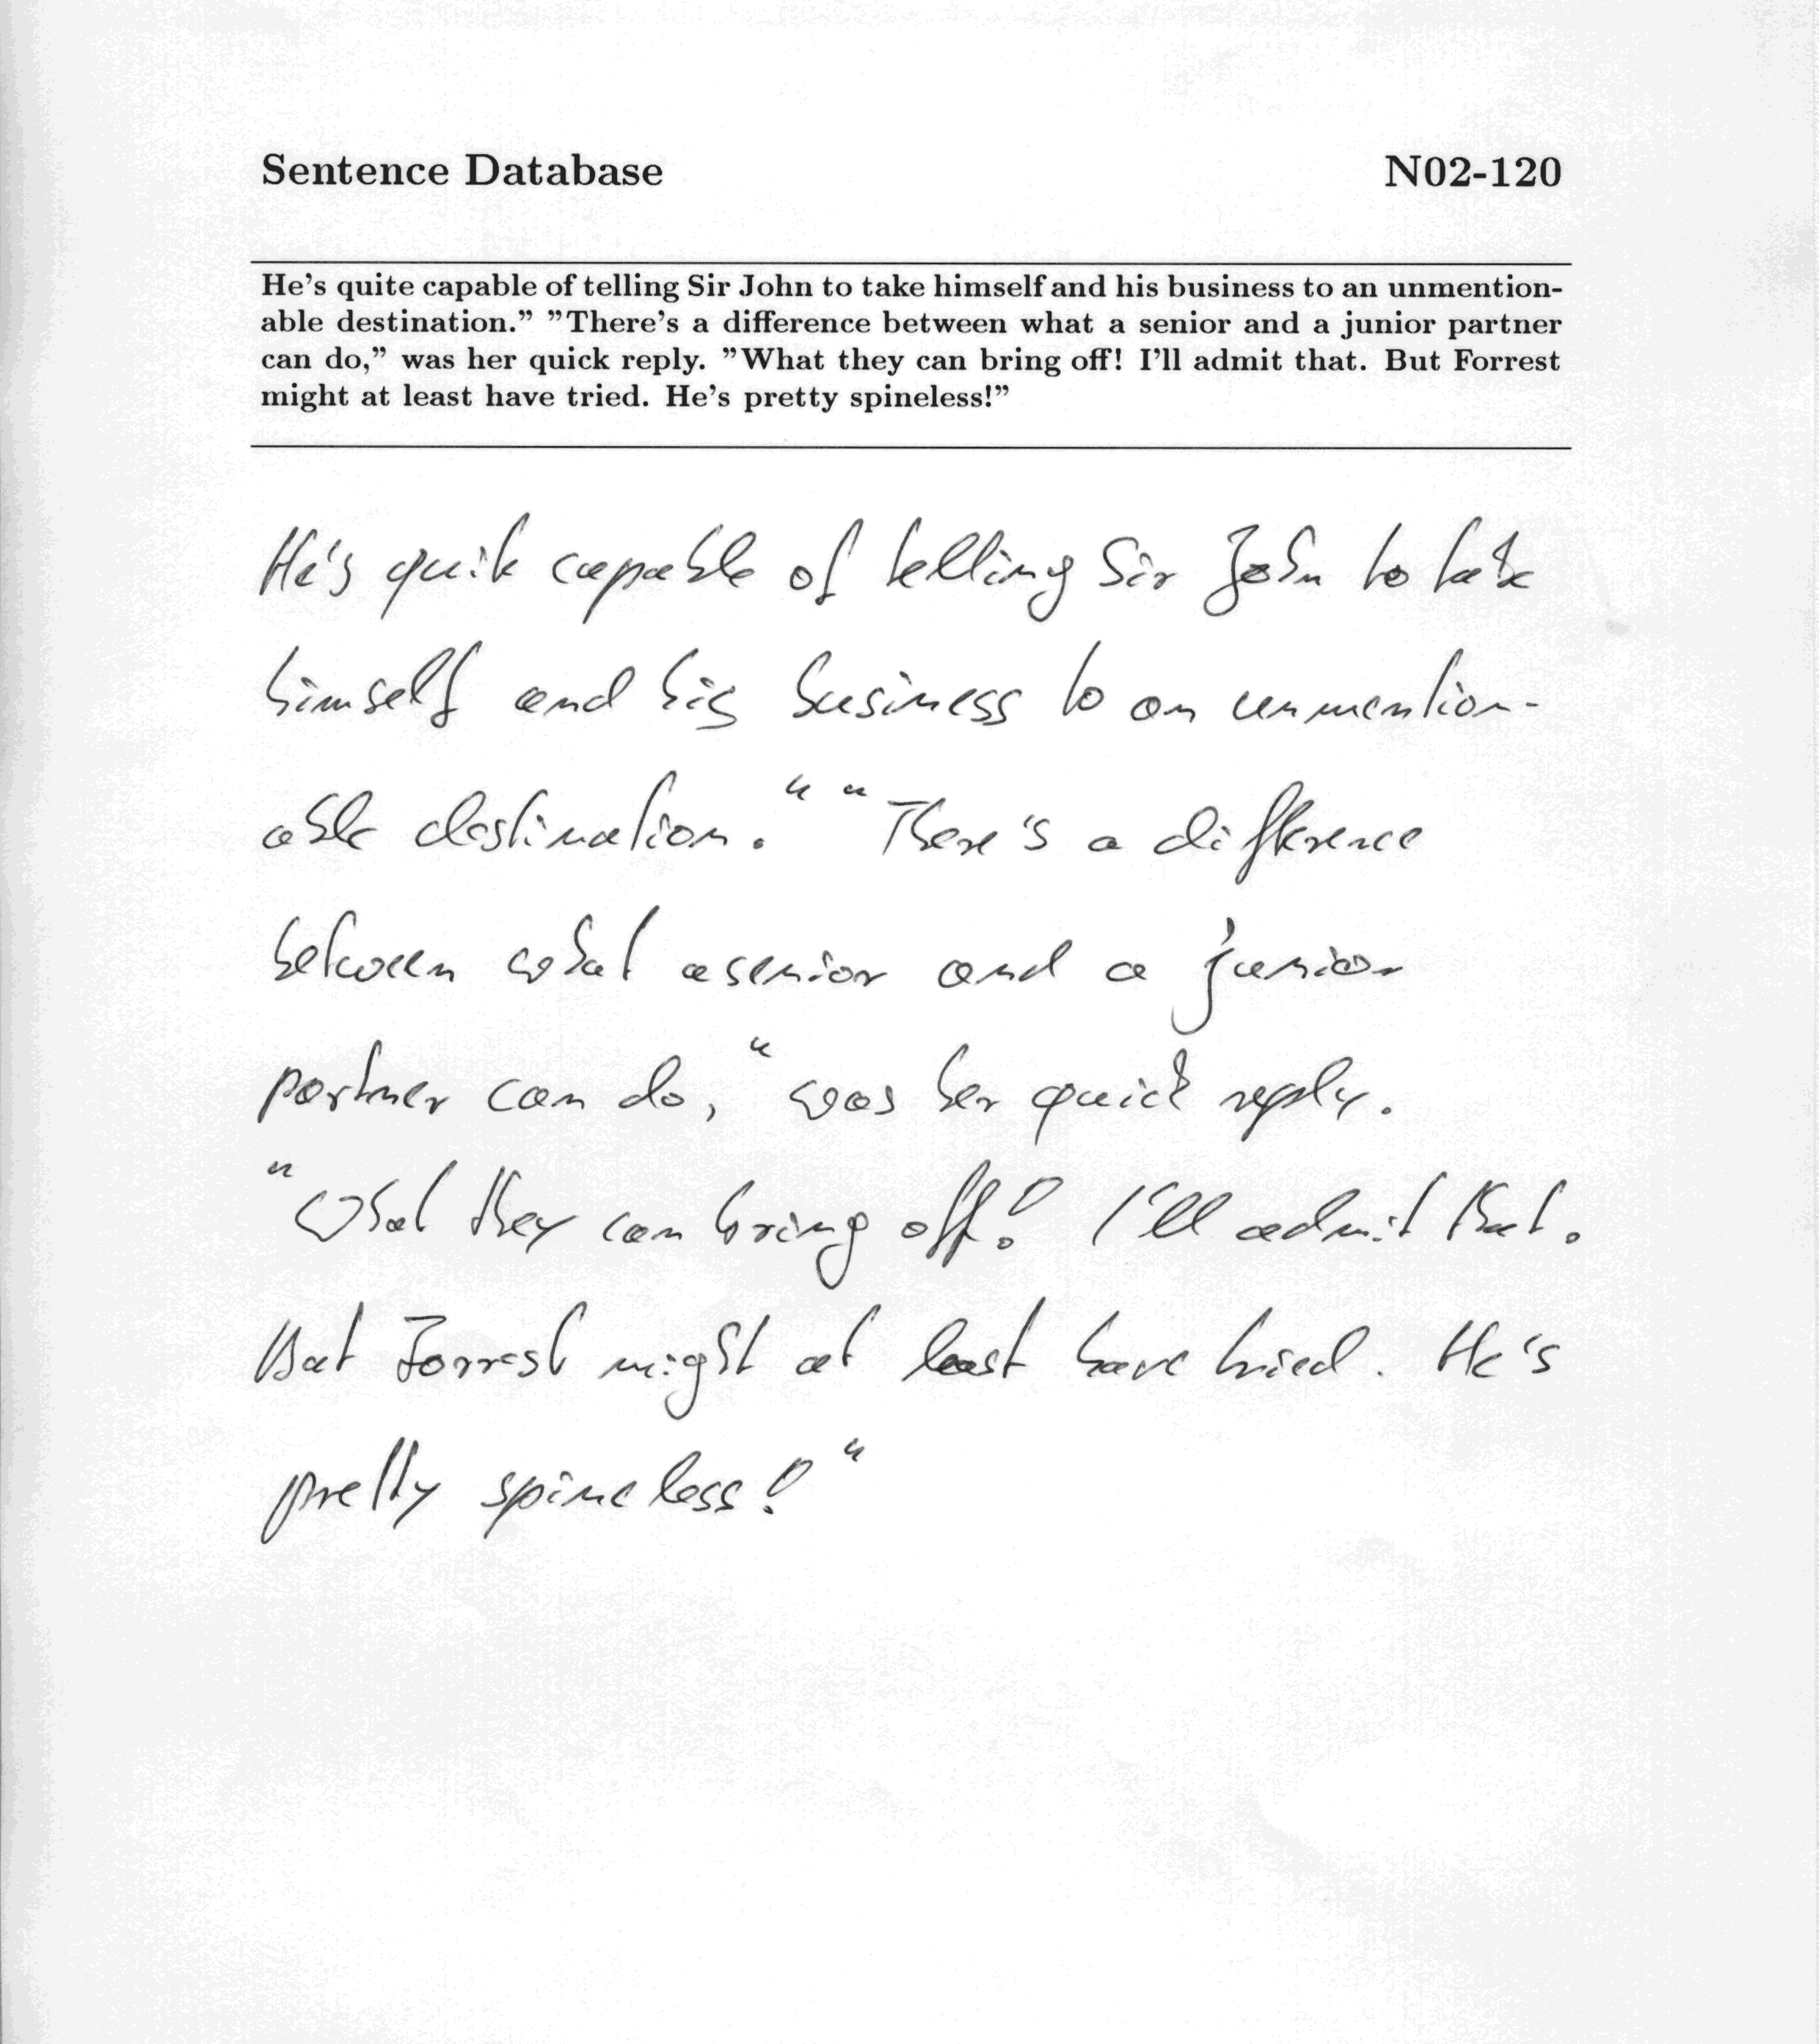 Sentence Database N02-120
He's quite capable of telling Sir John to take himself and his business to an unmention-
able destination.” ”There's a difference between what a senior and a junior partner
can do,” was her quick reply. ”What they can bring off! I'll admit that. But Forrest
might at least have tried. He's pretty spineless!”
He's quite capable of telling Sir John to take
himself and his business to an unmention-
able destination." "There's a difference
between what a senior and a junior
partner can do," was her quick reply.
"What they can bring off! I'll admit that.
But Forrest might at least have tried. He's
pretty spineless!"